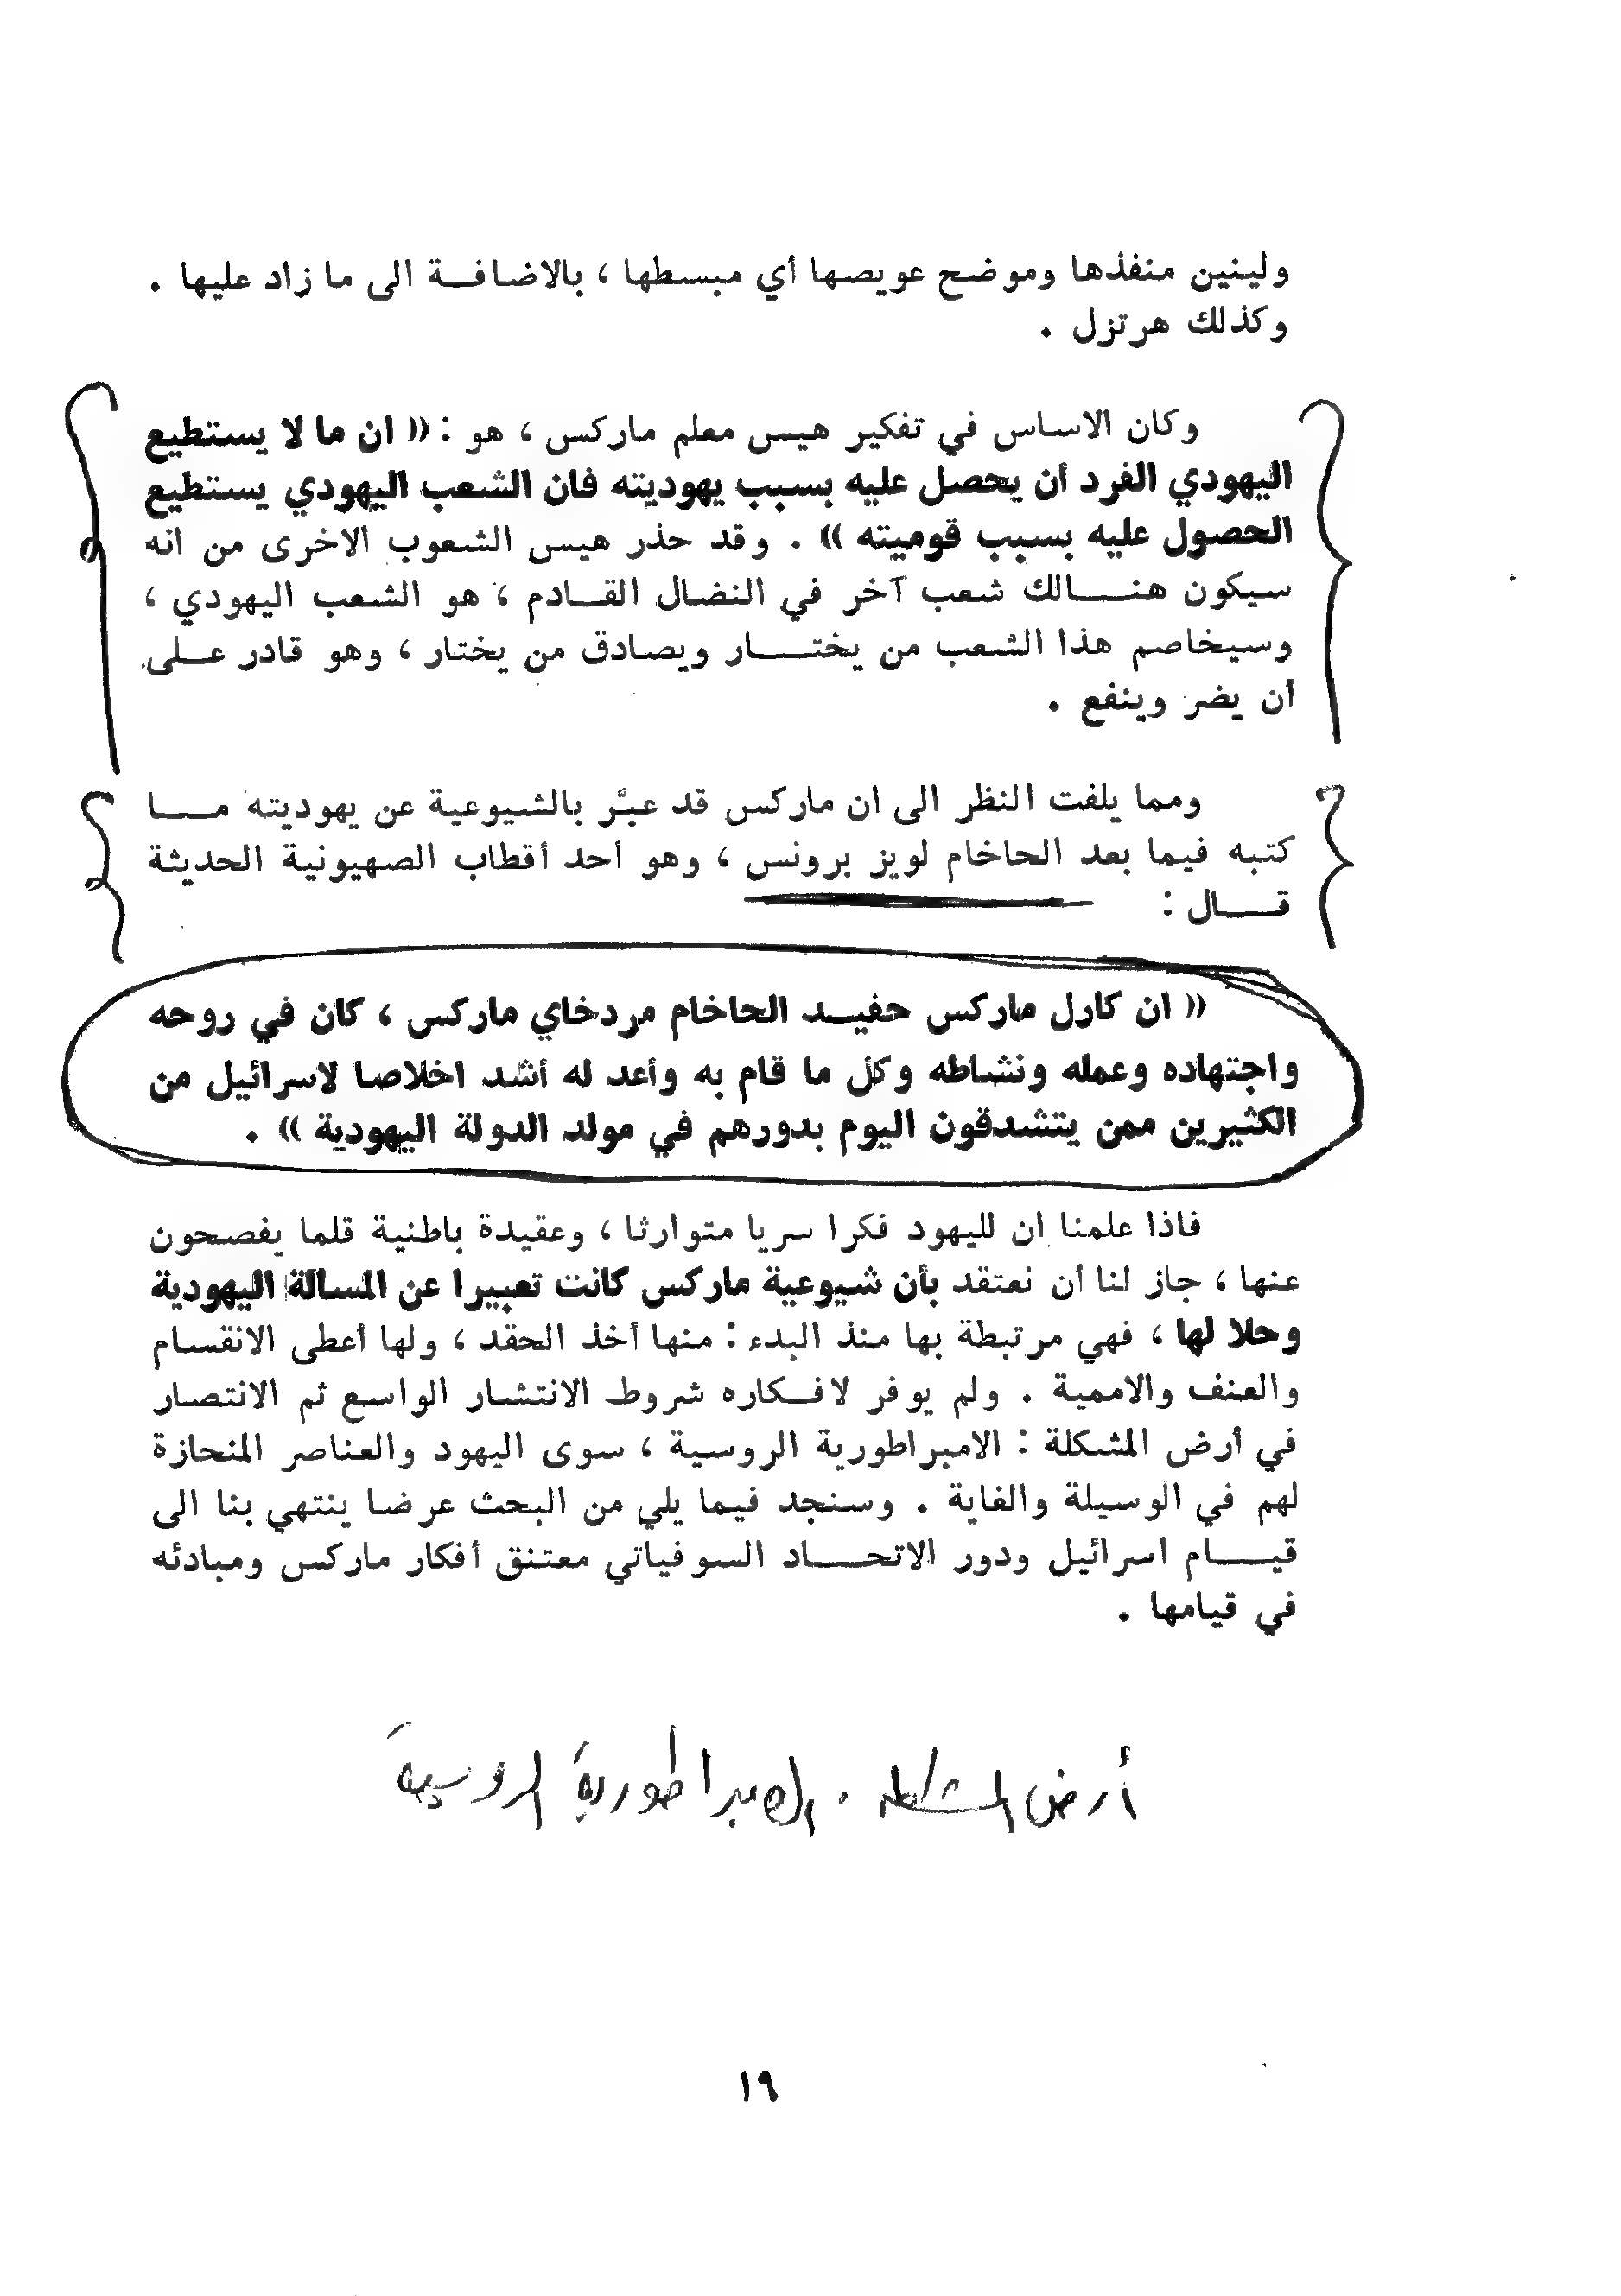 ولينين منفذها وموضح عويصها أي مبسطها ، بالاضافة الى ما زاد عليها .
وكذلك هرتزل .
وكان الاساس في تفكير هيس معلم ماركس ، هو : (( ان ما لا يستطيع
اليهودي الفرد أن يحصل عليه بسبب يهوديته فان الشعب اليهودي يستطيع
الحصول عليه بسبب قوميته )) . وقد حذر هيس الشعوب الاخرى من انه
سيكون هنالك شعب آخر في النضال القادم ، هو الشعب اليهودي ،
وسيخاصم هذا الشعب من يختار ويصادق من يختار ، وهو قادر على
أن يضر وينفع .
ومما يلفت النظر الى ان ماركس قد عبَّر بالشيوعية عن يهوديته ما
كتبه فيما بعد الحاخام لويز برونس ، وهو أحد أقطاب الصهيونية الحديثة
قال :
(( ان كارل ماركس حفيد الحاخام مردخاي ماركس ، كان في روحه
واجتهاده وعمله ونشاطه وكل ما قام به وأعد له أشد اخلاصا لاسرائيل من
الكثيرين ممن يتشدقون اليوم بدورهم في مولد الدولة اليهودية )) .
فاذا علمنا ان لليهود فكرا سريا متوارثا ، وعقيدة باطنية قلما يفصحون
عنها ، جاز لنا أن نعتقد بأن شيوعية ماركس كانت تعبيرا عن المسالة اليهودية
وحلا لها ، فهي مرتبطة بها منذ البدء : منها أخذ الحقد ، ولها أعطى الانقسام
والعنف والاممية . ولم يوفر لافكاره شروط الانتشار الواسع ثم الانتصار
في أرض المشكلة : الامبراطورية الروسية ، سوى اليهود والعناصر المنحازة
لهم في الوسيلة والغاية . وسنجد فيما يلي من البحث عرضا ينتهي بنا الى
قيام اسرائيل ودور الاتحاد السوفياتي معتنق أفكار ماركس ومبادئه
في قيامها .
أرض المشكلة . الامبراطورية الروسية
١٩